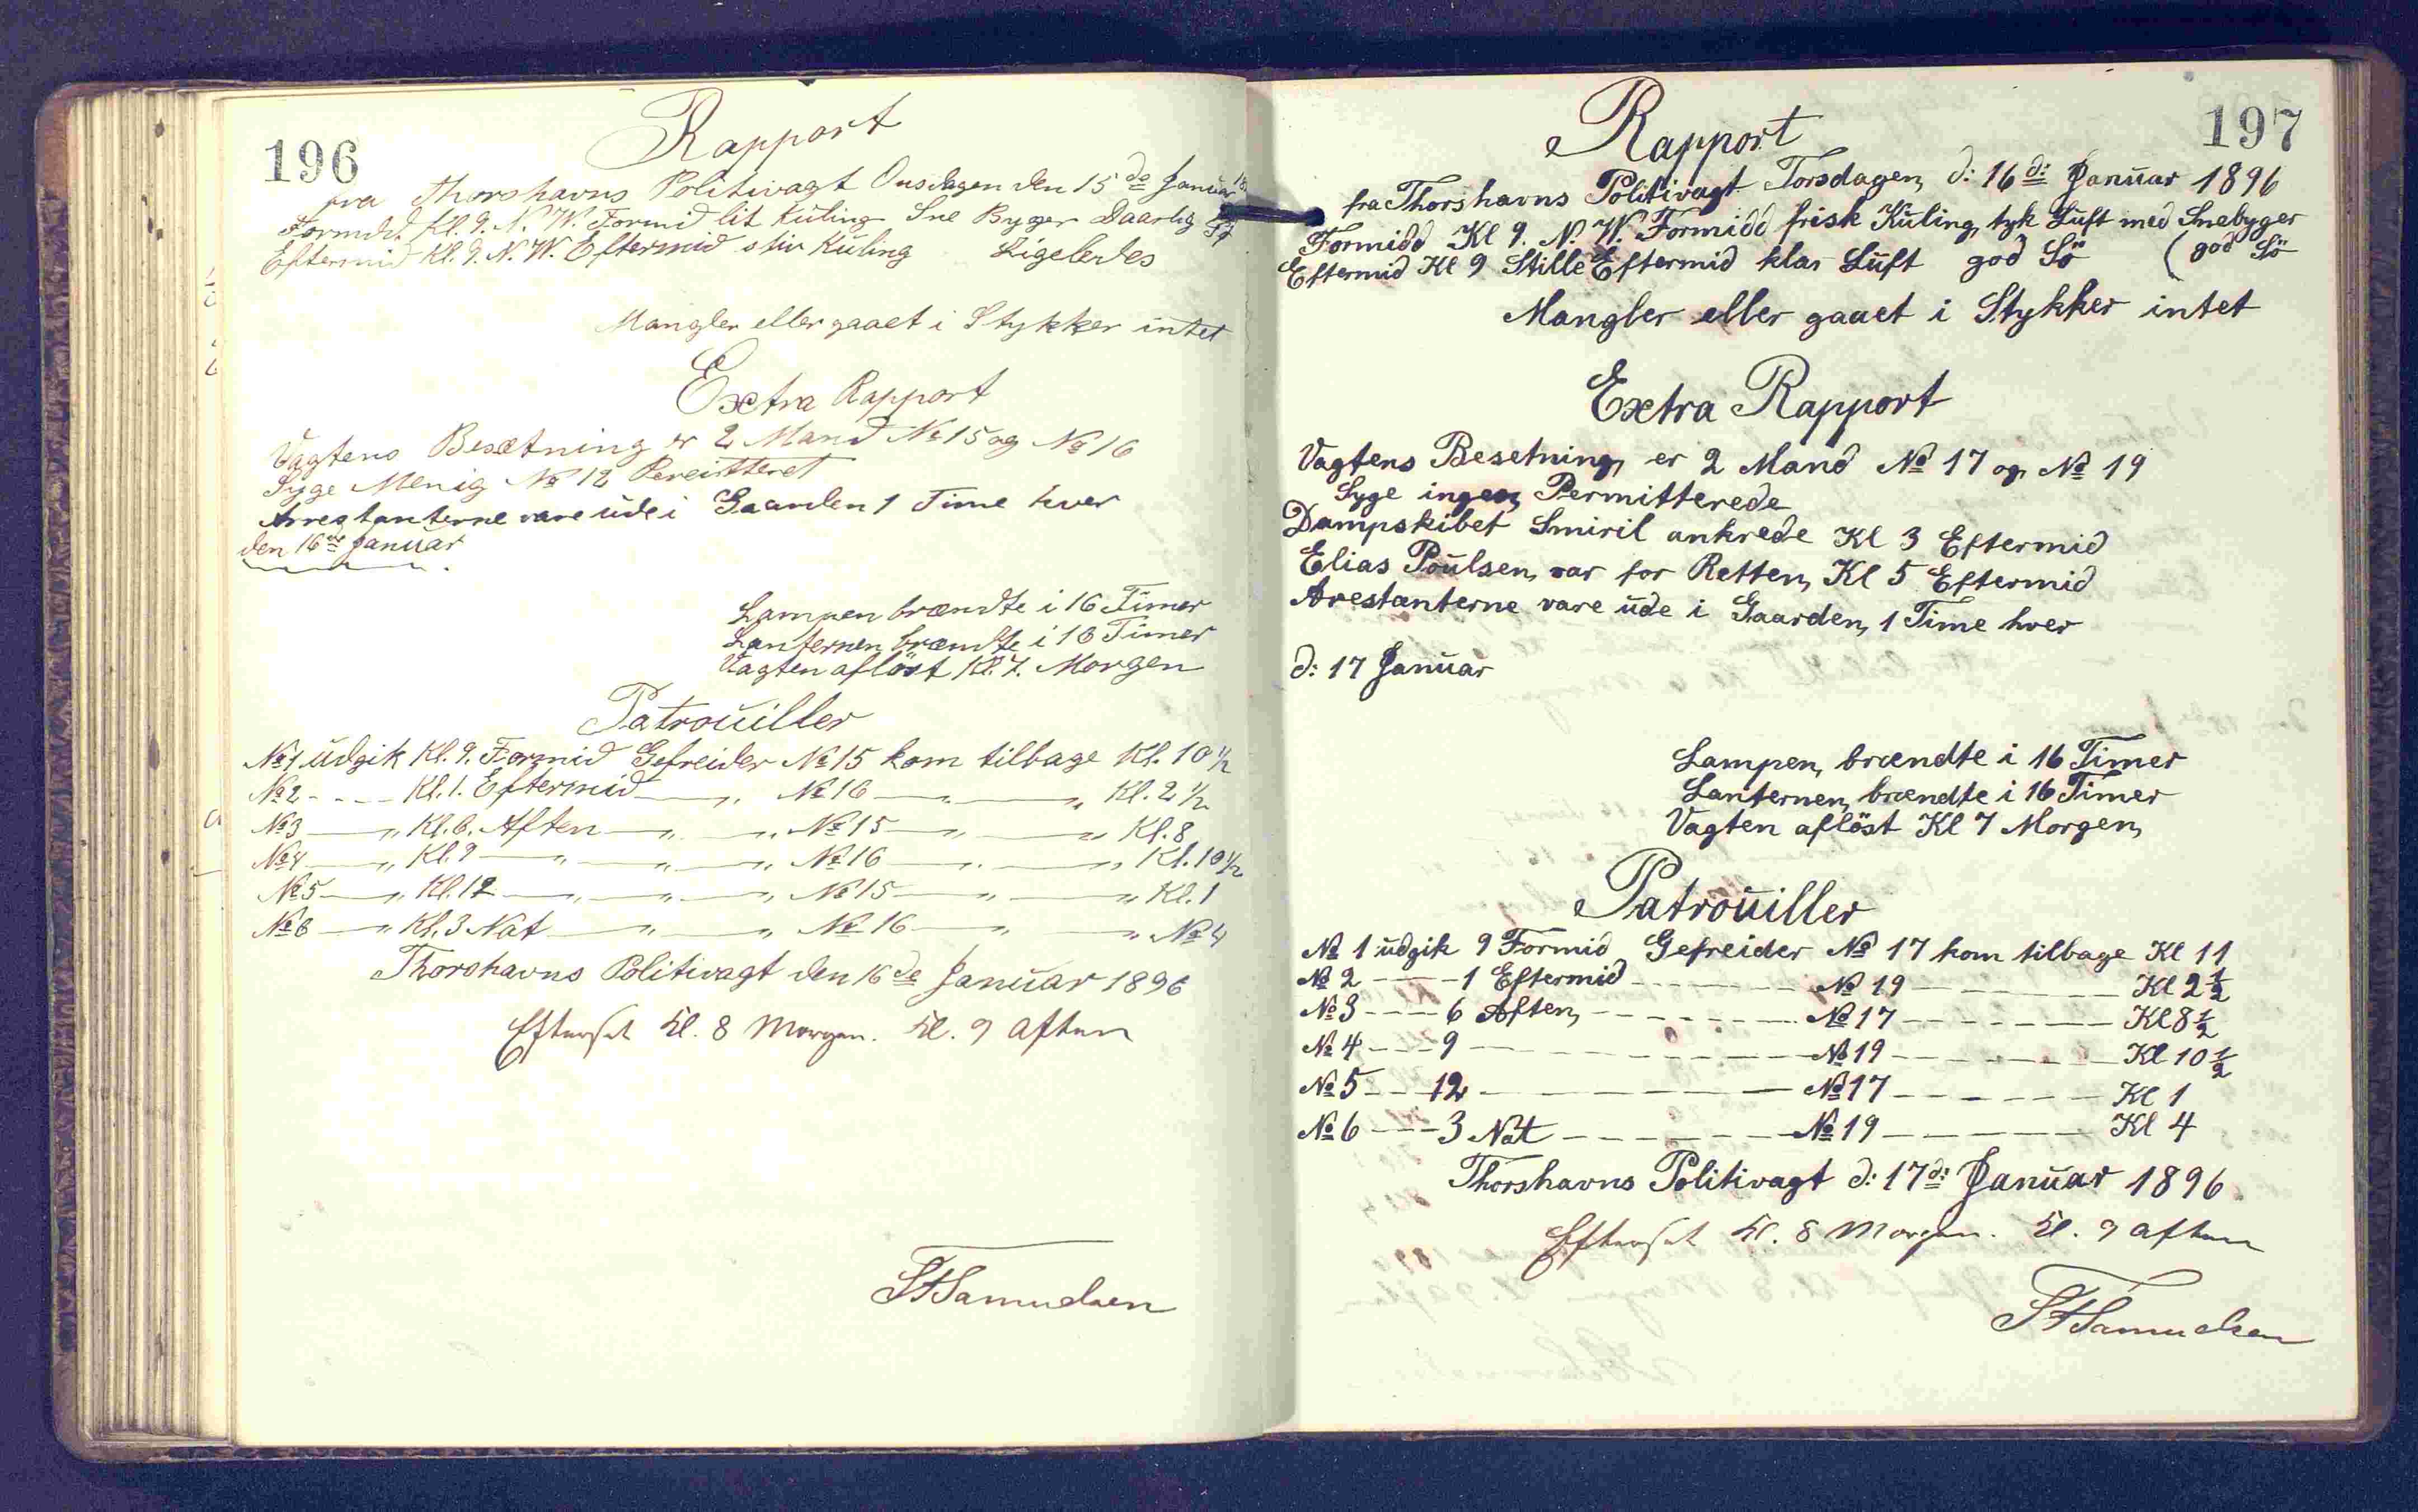 196
Rapport
fra Thorshavns Politivagt Onsdagen den 15de Januar 18
Formid. Kl. 9. N. W. Formid lit Kuling Sne Bygger Daarlig
Eftermid Kl. 9. N. W. Eftermid stiv Kuling Ligeledes
Mangler eller gaaet i Stykker intet
Extra Rapport
Vagtens Besætning er 2 Mand № 15 og № 16
Syge Menig № 12
Arrestanterne vare ude i Gaarden 1 Time hver
den 16de Januar
Lampen brændte i 16 Timer
Lanternen brændte i 16 Timer
Vagten aflöst Kl. 7. Morgen
Patrouiller
№ 1 udgik Kl. 9. Formid Gefreider № 15 kom tilbage Kl. 10 1/2
№ 2 - - - - Kl. 1. Eftermid — „ № 16 — „ — „ Kl. 2 1/2
№ 3 — „ Kl. 6. Aften — „ — „ № 15 — „ — „ Kl. 8
№ 4 — „ Kl. 9 — „ — „ — „ № 16 — „ — „ Kl. 10 1/2
№ 5 — „ Kl. 12 — „ — „ — „ № 15 — „ — „ Kl. 1
№ 6 — „ Kl. 3 Nat — „ — „ № 16 — „ — „ № 4
Thorshavns Politivagt den 16de Januar 1896
Efterset Kl. 8 Morgen. Kl. 9 Aften
Samuelsen
197
Rapport
fra Thorshavns Politivagt Torsdagen, d: 16d: Januar 1896
Formidd Kl 9. N. W. Formidd frisk Kuling, tyk Luft med Snebyger
Eftermid Kl 9 Stille Eftermid klar Luft god Sö (god Sö
Mangler eller gaaet i Stykker intet
Extra Rapport
Vagtens Besetning, er 2 Mand № 17 og, № 19
Syge ingen, Permitterede
Dampskibet Smiril ankrede Kl 3 Eftermid
Elias Poulsen, var for Retten, Kl 5 Eftermid
Arestanterne vare ude i Gaarden, 1 Time hver
d: 17 Januar
Lampen, brændte i 16 Timer
Lanternen, brændte i 16 Timer
Vagten aflöst Kl 7 Morgen,
Patrouiller
№ 1 udgik 9 Formid Gefreider № 17 kom tilbage Kl 11
№ 2 - - - - 1 Eftermid - - - - - - № 19 - - - - - - Kl 2 1/2
№ 3 - - - - 6 Aften, - - - - - - № 17 - - - - - - Kl 8 1/2
№ 4 - - - 9 - - - - - - № 19 - - - - - - Kl 10 1/2
№ 5 - - - 12 - - - - - - № 17 - - - - - - Kl 1
№ 6 - - - 3 Nat - - - - - - № 19 - - - - - - Kl 4
Thorshavns Politivagt d: 17d: Januar 1896
Efterset Kl. 8 Morgen. Kl. 9 Aften
Samuelsen